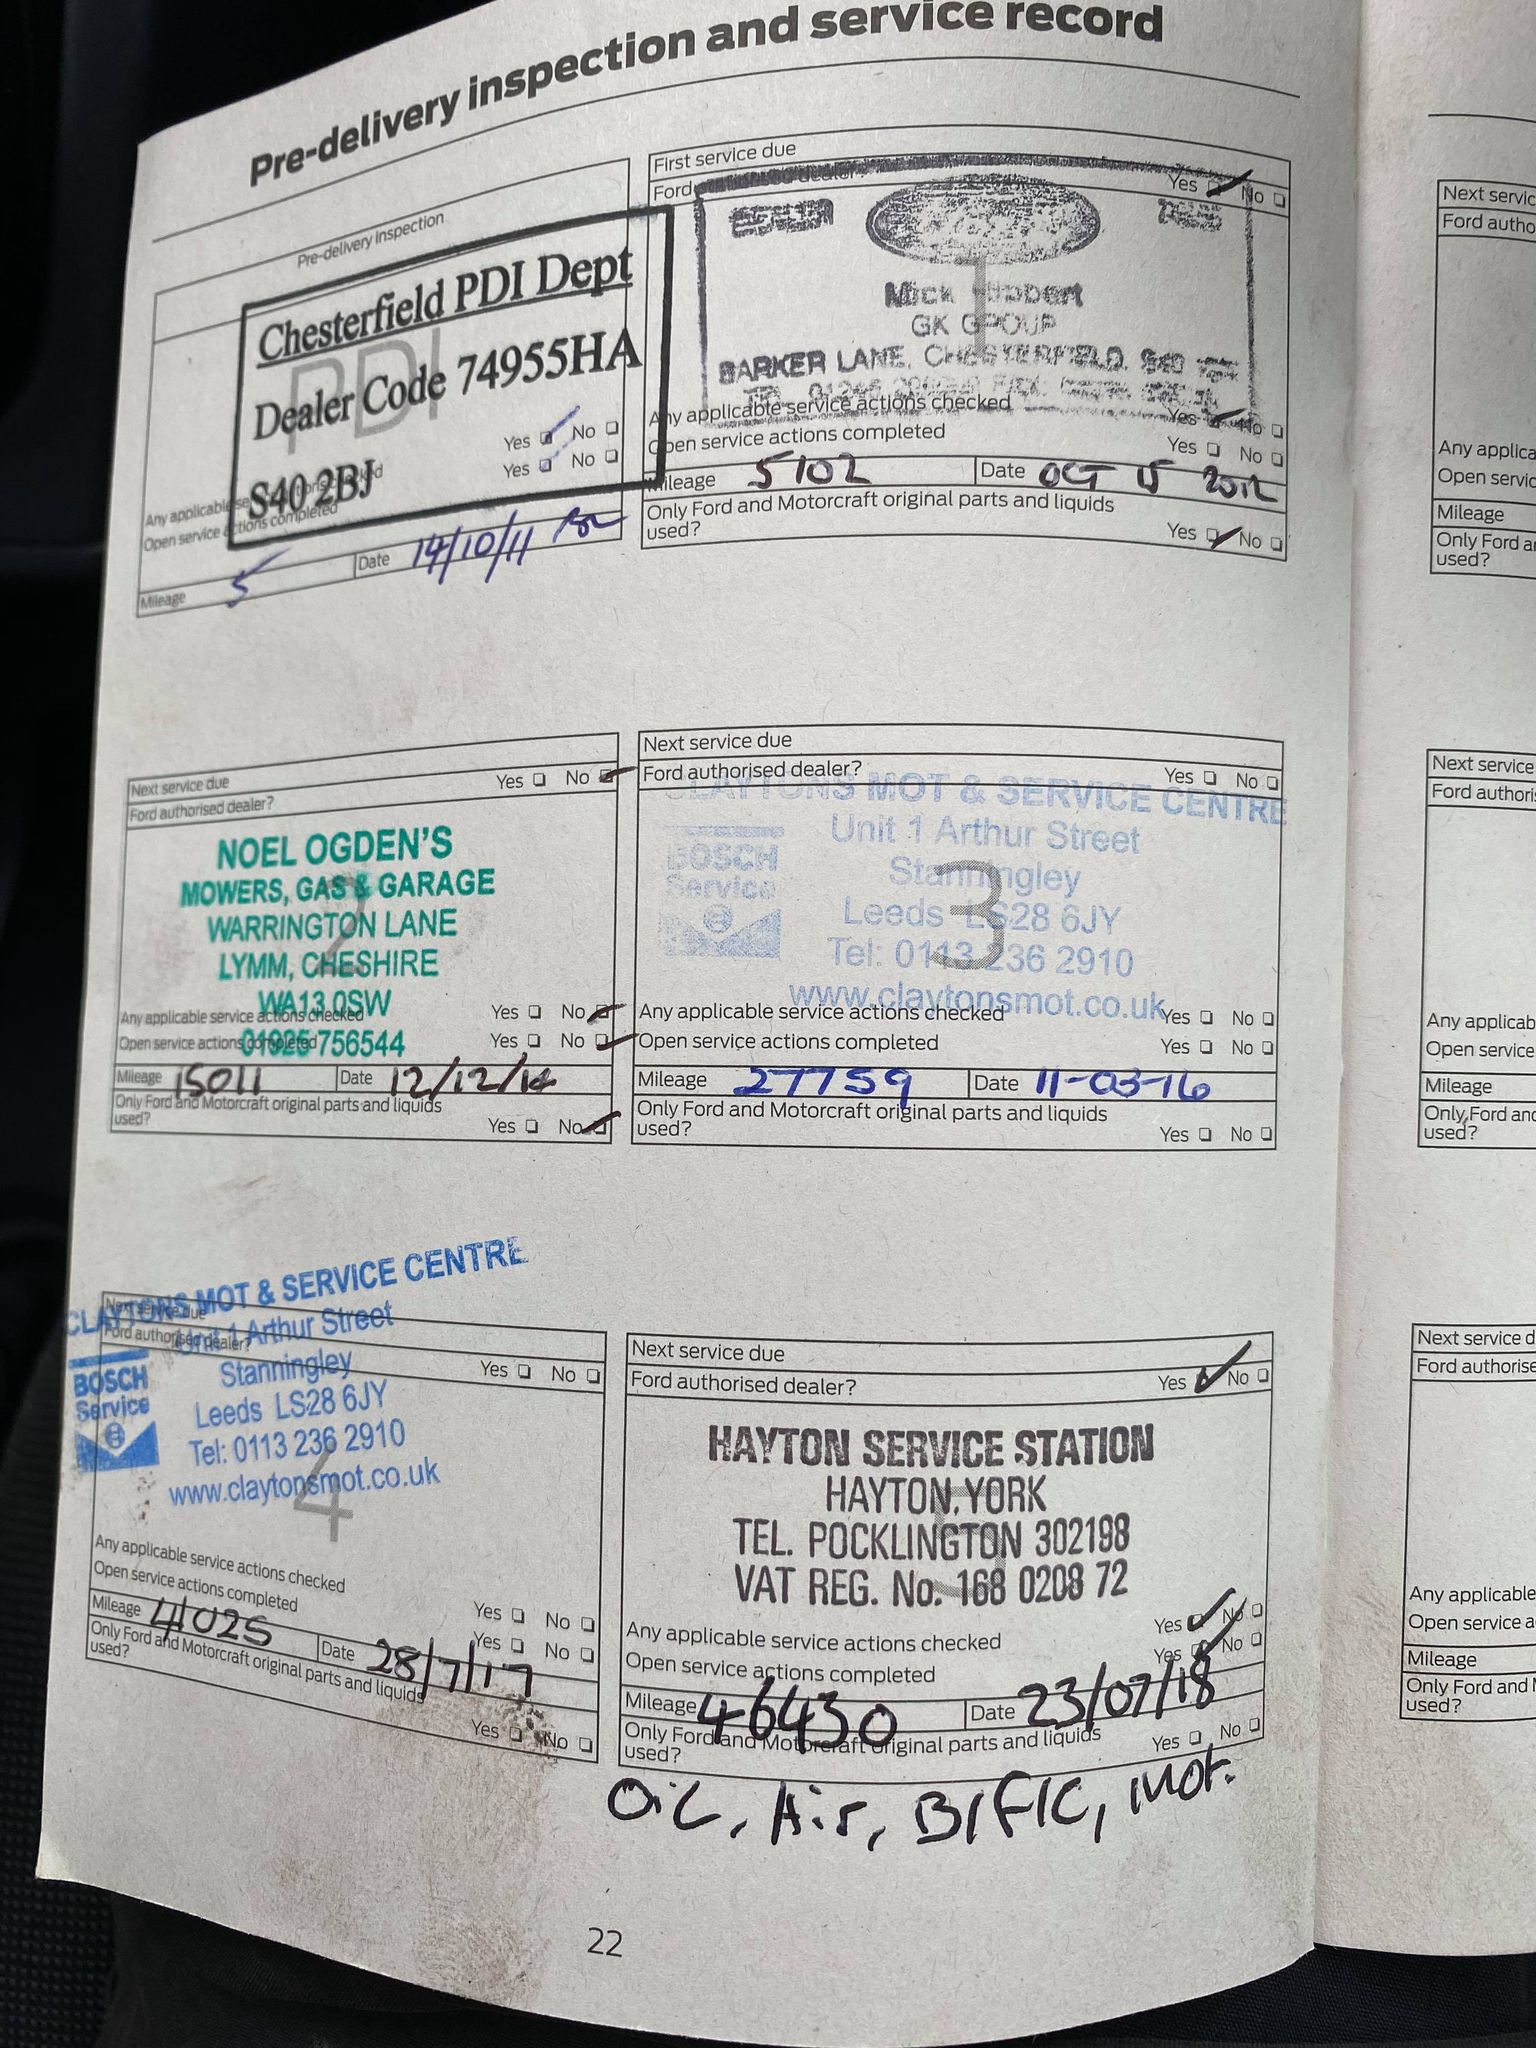 Pre-delivery inspection and service record
Pre-delivery inspection
Chesterfield PDI Dept
PDI
Dealer Code 74955HA
S40 2BJ
Yes No
Yes No
Any applicable
Open service actions completed
Mileage 5 Date 14/10/11
First service due
Ford authorised dealer? Yes No
1
Mick
GK GROUP
BARKER LANE, CHESTERFIELD, S40
Any applicable service actions checked Yes No
Open service actions completed Yes No
Mileage 5102 Date OCT 15 2012
Only Ford and Motorcraft original parts and liquids
used? Yes No
Next service due Yes No
Ford authorised dealer?
NOEL OGDEN'S
MOWERS, GAS & GARAGE
2
WARRINGTON LANE
LYMM, CHESHIRE
WA13 0SW
Any applicable service actions checked Yes No
Open service actions completed Yes No
01925 756544
Mileage 15011 Date 12/12/14
Only Ford and Motorcraft original parts and liquids
used? Yes No
Next service due
Ford authorised dealer? Yes No
CLAYTONS MOT & SERVICE CENTRE
BOSCH
Service
Unit 1 Arthur Street
Stanningley
3
Leeds LS28 6JY
Tel: 0113 236 2910
www.claytonsmot.co.uk
Any applicable service actions checked Yes No
Open service actions completed Yes No
Mileage 27759 Date 11-03-16
Only Ford and Motorcraft original parts and liquids
used? Yes No
CLAYTONS MOT & SERVICE CENTRE
Next service due
Ford authorised dealer? Yes No
Unit 1 Arthur Street
BOSCH
Service
Stanningley
Leeds LS28 6JY
Tel: 0113 236 2910
www.claytonsmot.co.uk
4
Any applicable service actions checked Yes No
Open service actions completed Yes No
Mileage 41025 Date 28/7/17
Only Ford and Motorcraft original parts and liquids
used? Yes No
Next service due
Ford authorised dealer? Yes No
HAYTON SERVICE STATION
HAYTON, YORK
TEL. POCKLINGTON 302198
VAT REG. No. 168 0208 72
Any applicable service actions checked Yes No
Open service actions completed Yes No
Mileage 46430 Date 23/07/18
Only Ford and Motorcraft original parts and liquids
used? Yes No
Oil, Air, B/F/C, Mot.
22
Next servic
Ford autho
Any applica
Open servic
Mileage
Only Ford a
used?
Next service
Ford authoris
Any applicab
Open service
Mileage
Only Ford and
used?
Next service d
Ford authorise
Any applicable
Open service a
Mileage
Only Ford and
used?